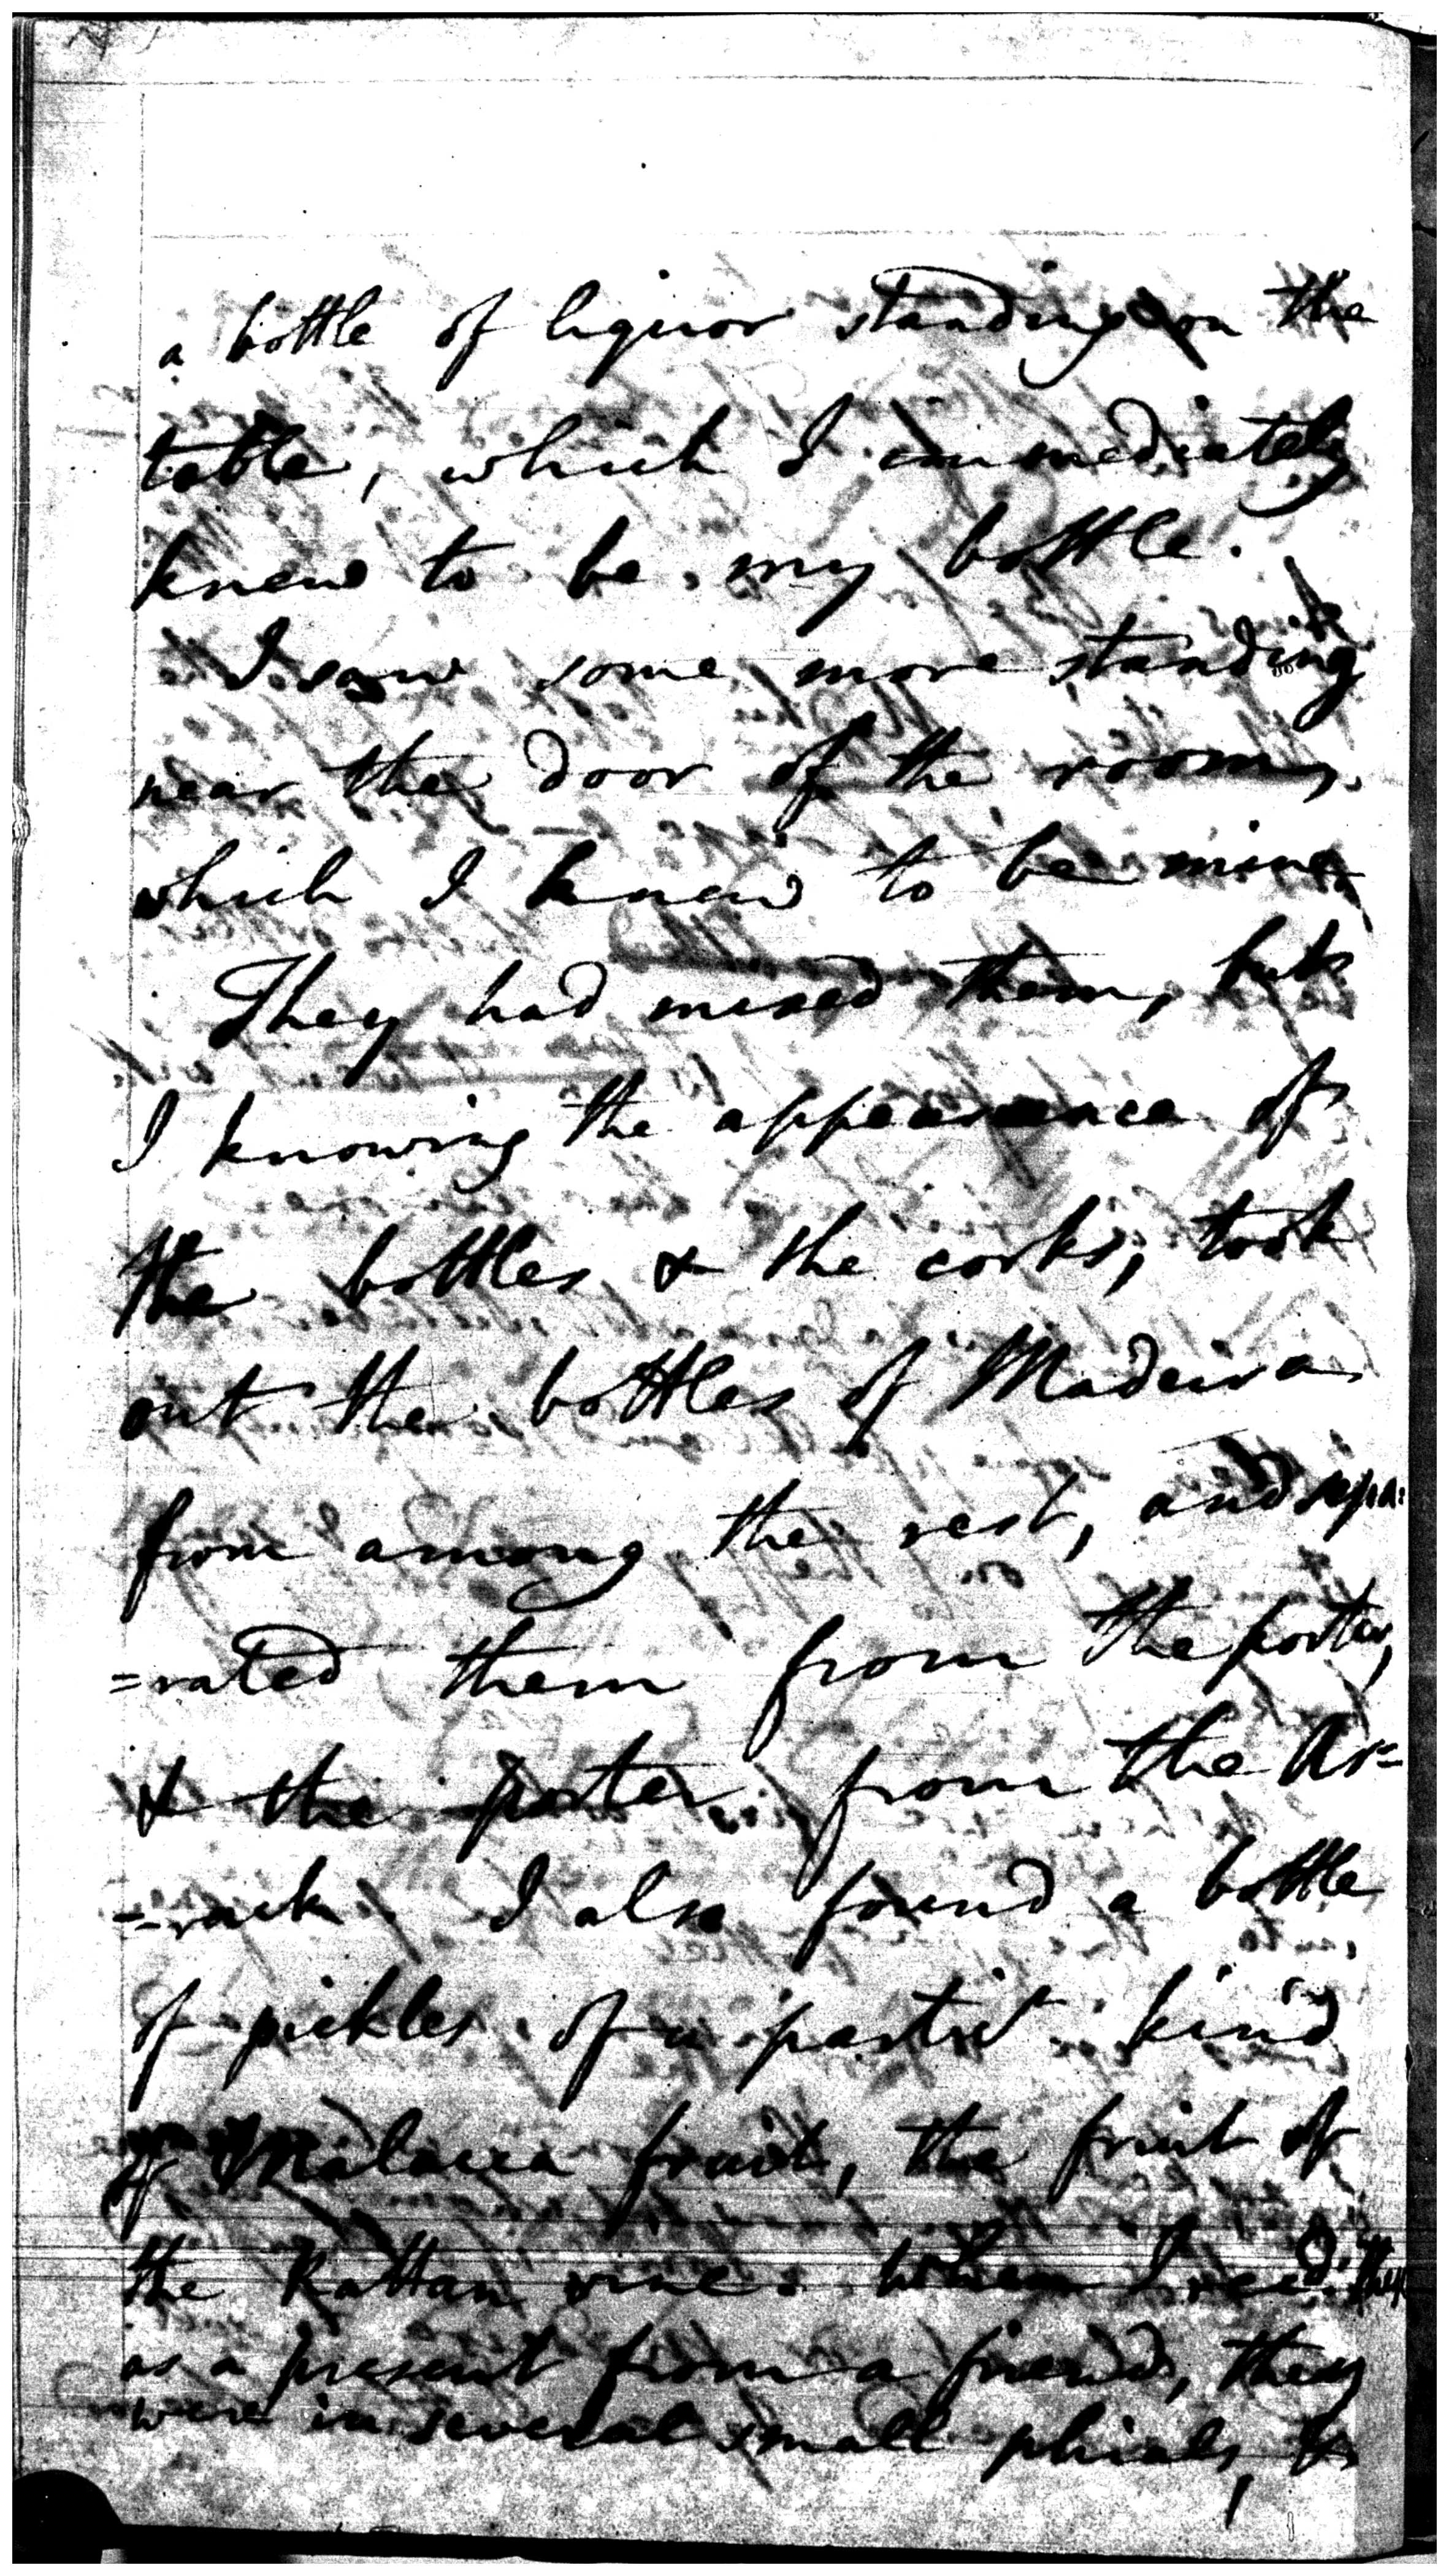 a bottle of liquor standing on the
table, which I immediately
knew to be my bottle.
I saw some more standing
near the door of the room,
which I knew to be mine
They had mixed them, but
I knowing the appearance of
the bottles & the corks, took
out the bottles of Madeira
from among the rest, and sepa=
=rated them from the porter,
& the porter from the Ar=
=rack. I also found a bottle
of pickles of a partic.r kind
of Malacca fruit, the fruit of
the Rattan vine. When I rec.d them
as a present from a friend, they
were in several small phials, &